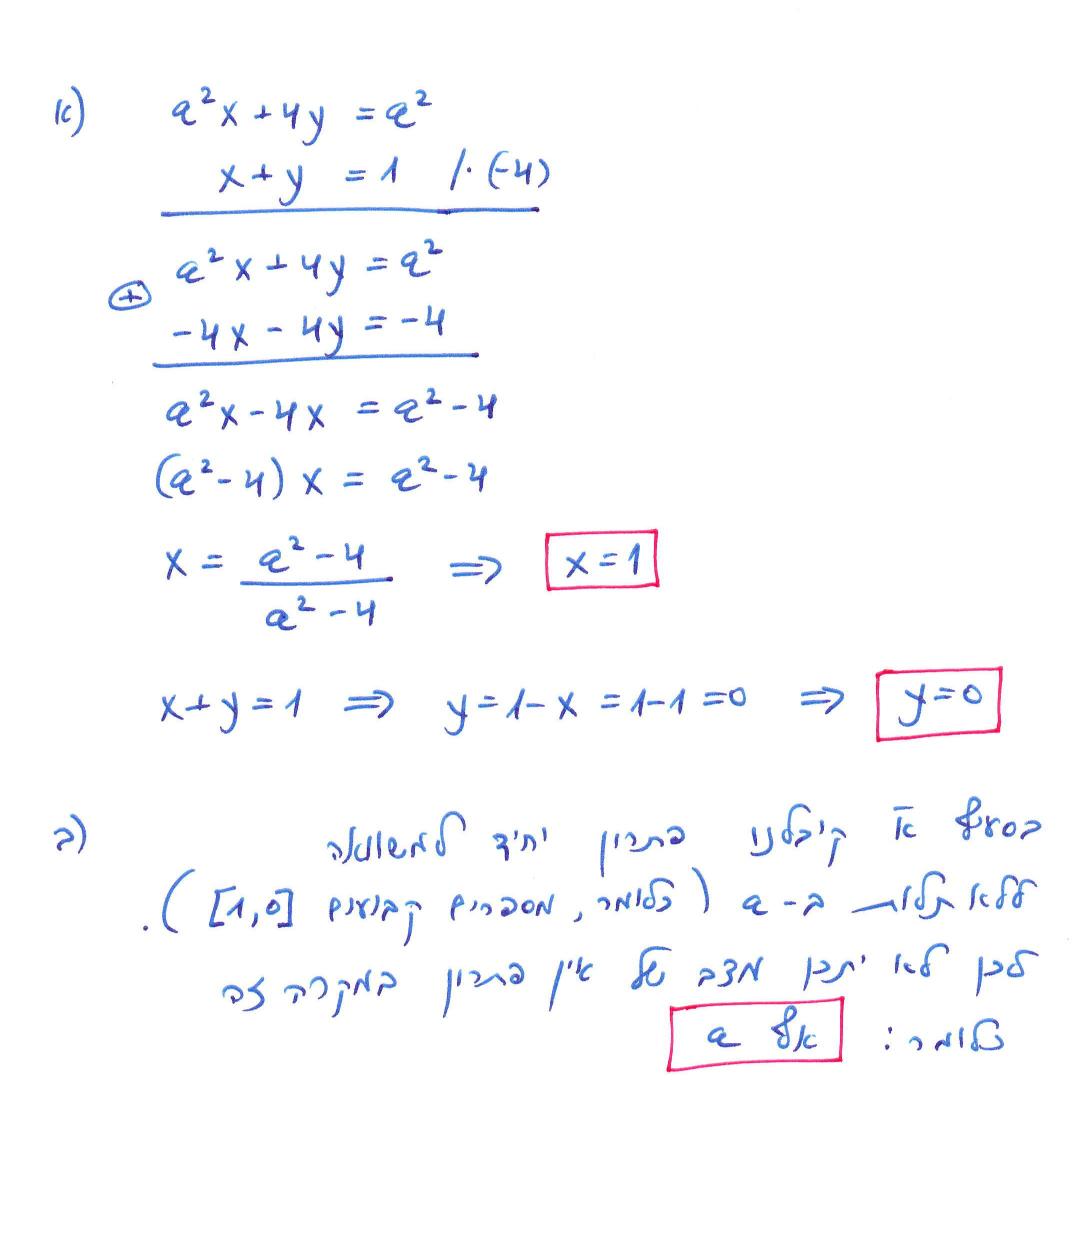 א) a²x + 4y = a²
x + y = 1 /·(-4)
a²x + 4y = a²
⊕
-4x - 4y = -4
a²x - 4x = a² - 4
(a² - 4) x = a² - 4
x = (a² - 4)/(a² - 4) ⇒ x = 1
x + y = 1 ⇒ y = 1 - x = 1 - 1 = 0 ⇒ y = 0
ב) בסעיף א קיבלנו פתרון יחיד למשוואה
ללא תלות ב-a (כלומר, מספרים קבועים [1,0]).
לכן לא יתכן מצב של אין פתרון במקרה זה
כלומר: אף a